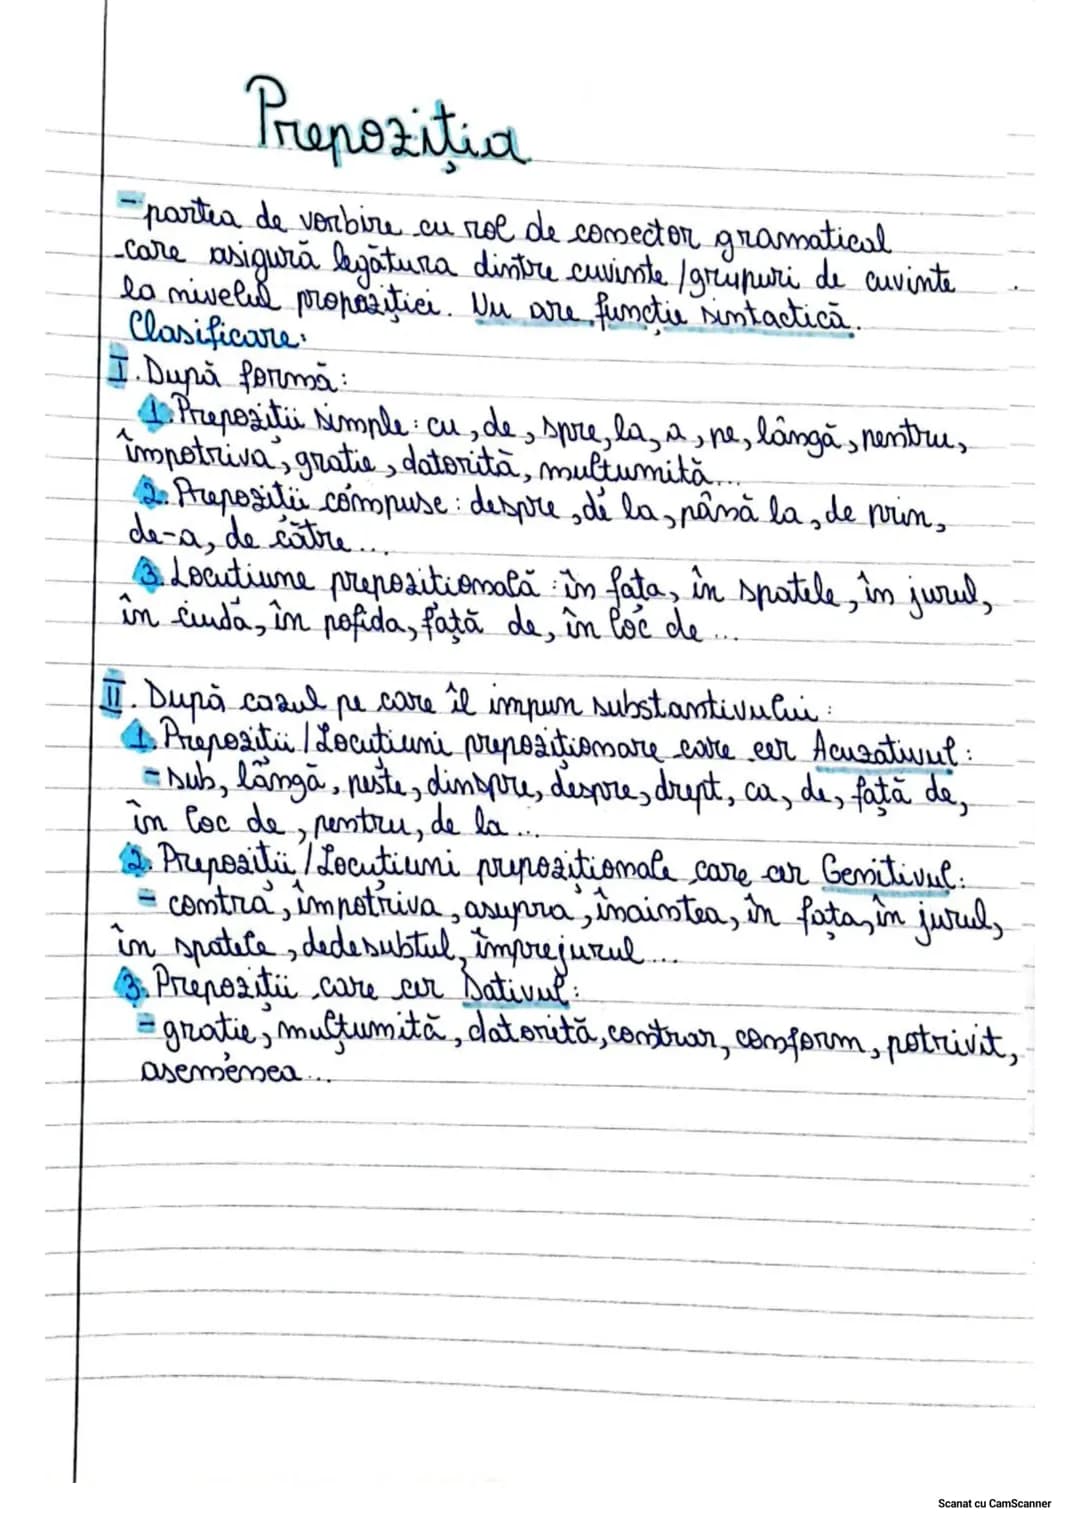 Prepoziția
- partea de vorbire cu rol de conector gramatical
care asigură legătura dintre cuvinte / grupuri de cuvinte
la nivelul propoziției. Nu are funcție sintactică.
Clasificare:
I. După formă:
1. Prepoziții simple: cu, de, spre, la, a, pe, lângă, pentru,
împotriva, grație, datorită, mulțumită...
2. Prepoziții compuse: despre, de la, până la, de prin,
de-a, de către...
3. Locuțiune prepozițională: în fața, în spatele, în jurul,
în ciuda, în pofida, față de, în loc de ...
II. După cazul pe care îl impun substantivului:
1. Prepoziții / Locuțiuni prepoziționare care cer Acuzativul:
- sub, lângă, peste, dinspre, despre, drept, ca, de, față de,
în loc de, pentru, de la ...
2. Prepoziții / Locuțiuni prepoziționale care cer Genitivul:
- contra, împotriva, asupra, înaintea, în fața, în jurul,
în spatele, dedesubtul, împrejurul...
3. Prepoziții care cer Dativul:
- grație, mulțumită, datorită, contrar, conform, potrivit,
asemenea...
Scanat cu CamScanner